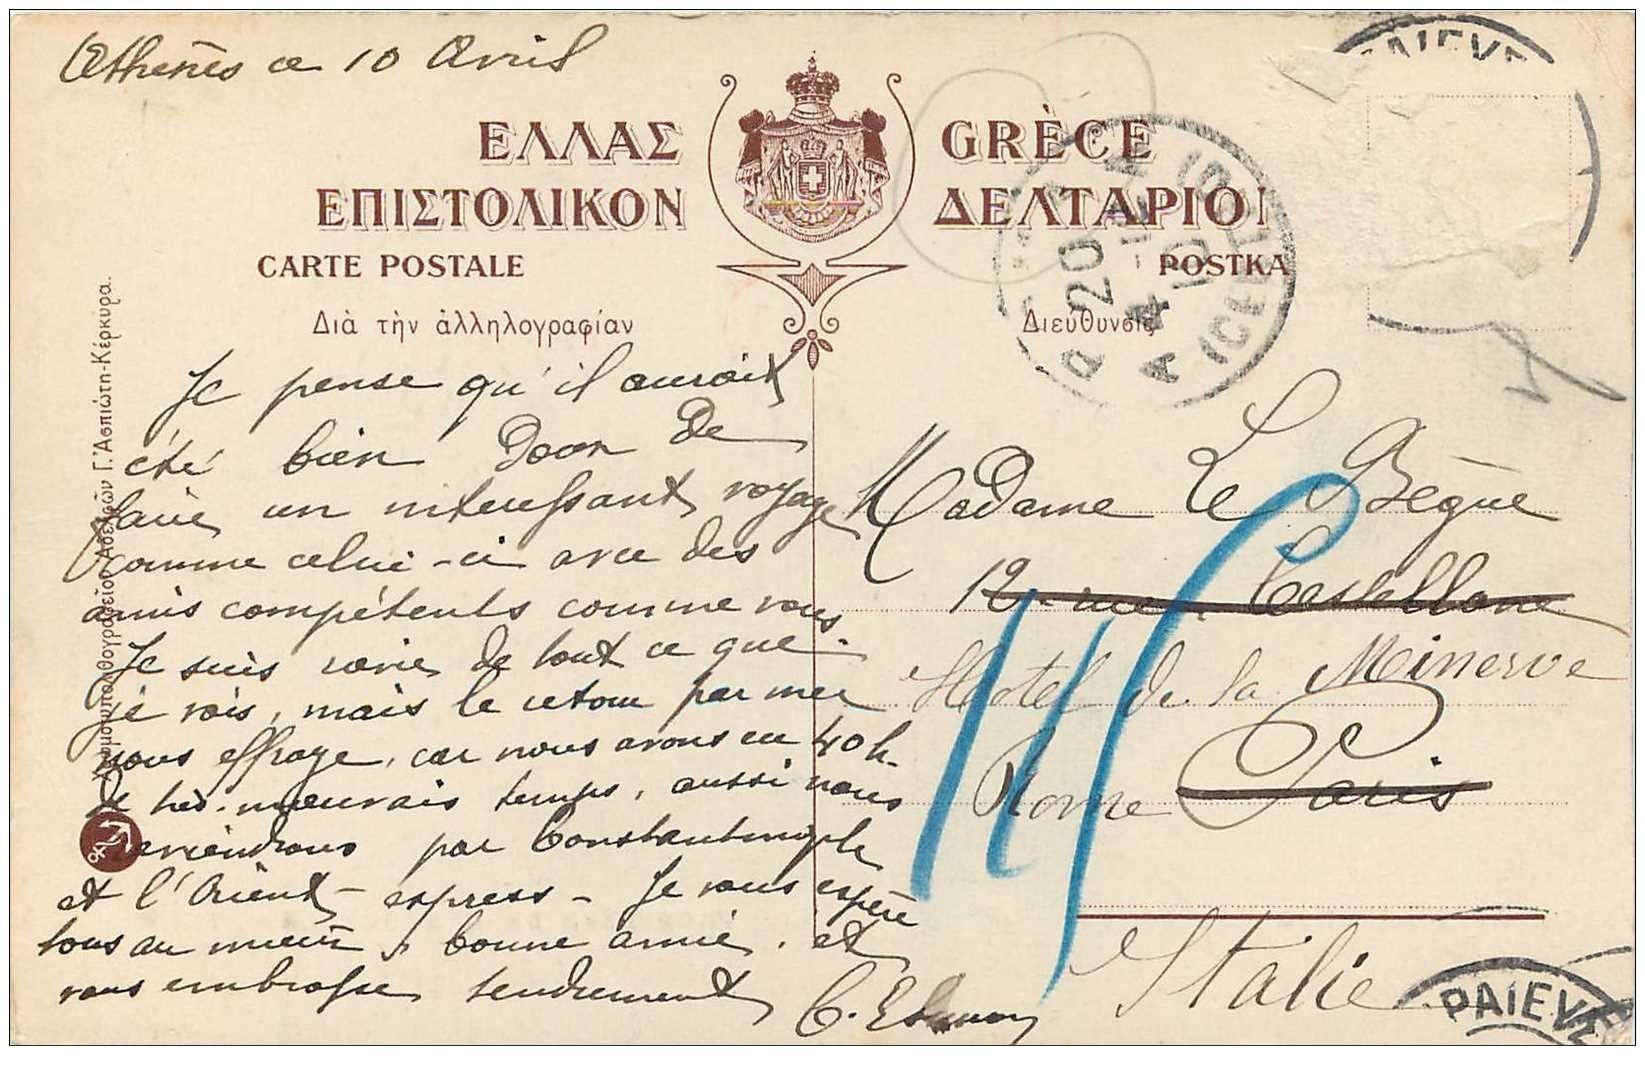 Athènes ce 10 Avril
ΕΛΛΑΣ GRÈCE
ΕΠΙΣΤΟΛΙΚΟΝ ΔΕΛΤΑΡΙΟΝ
CARTE POSTALE POSTKA
Διὰ τὴν ἀλληλογραφίαν Διεύθυνσις
Je pense qu'il auroit
été bien doux de
faire un intéressant voyage
comme celui-ci avec des
amis compétents comme vous.
Je suis ravie de tout ce que
je vois, mais le retour par mer
nous effraye, car nous avons eu 40 h.
de très mauvais temps, aussi nous
reviendrons par Constantinople
et l'Orient-express - Je vous espère
tous au mieux, bonne amie, et
vous embrasse tendrement
Madame Le Bègue
12 rue Castellane
Hotel de la Minerve
Rome Paris
Italie
20
4
10
PAIEVS
PAIEVS
Γ. Ἀσπιώτη-Κέρκυρα.